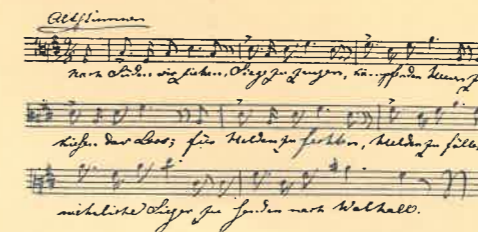 Altstimmen
nach Süden wir ziehen, Siege zu zeugen, kämpfenden Heeren
kiesen das Loos; für Helden zu fechten, Helden zu fälle
Sieger zu senden nach Walhall.